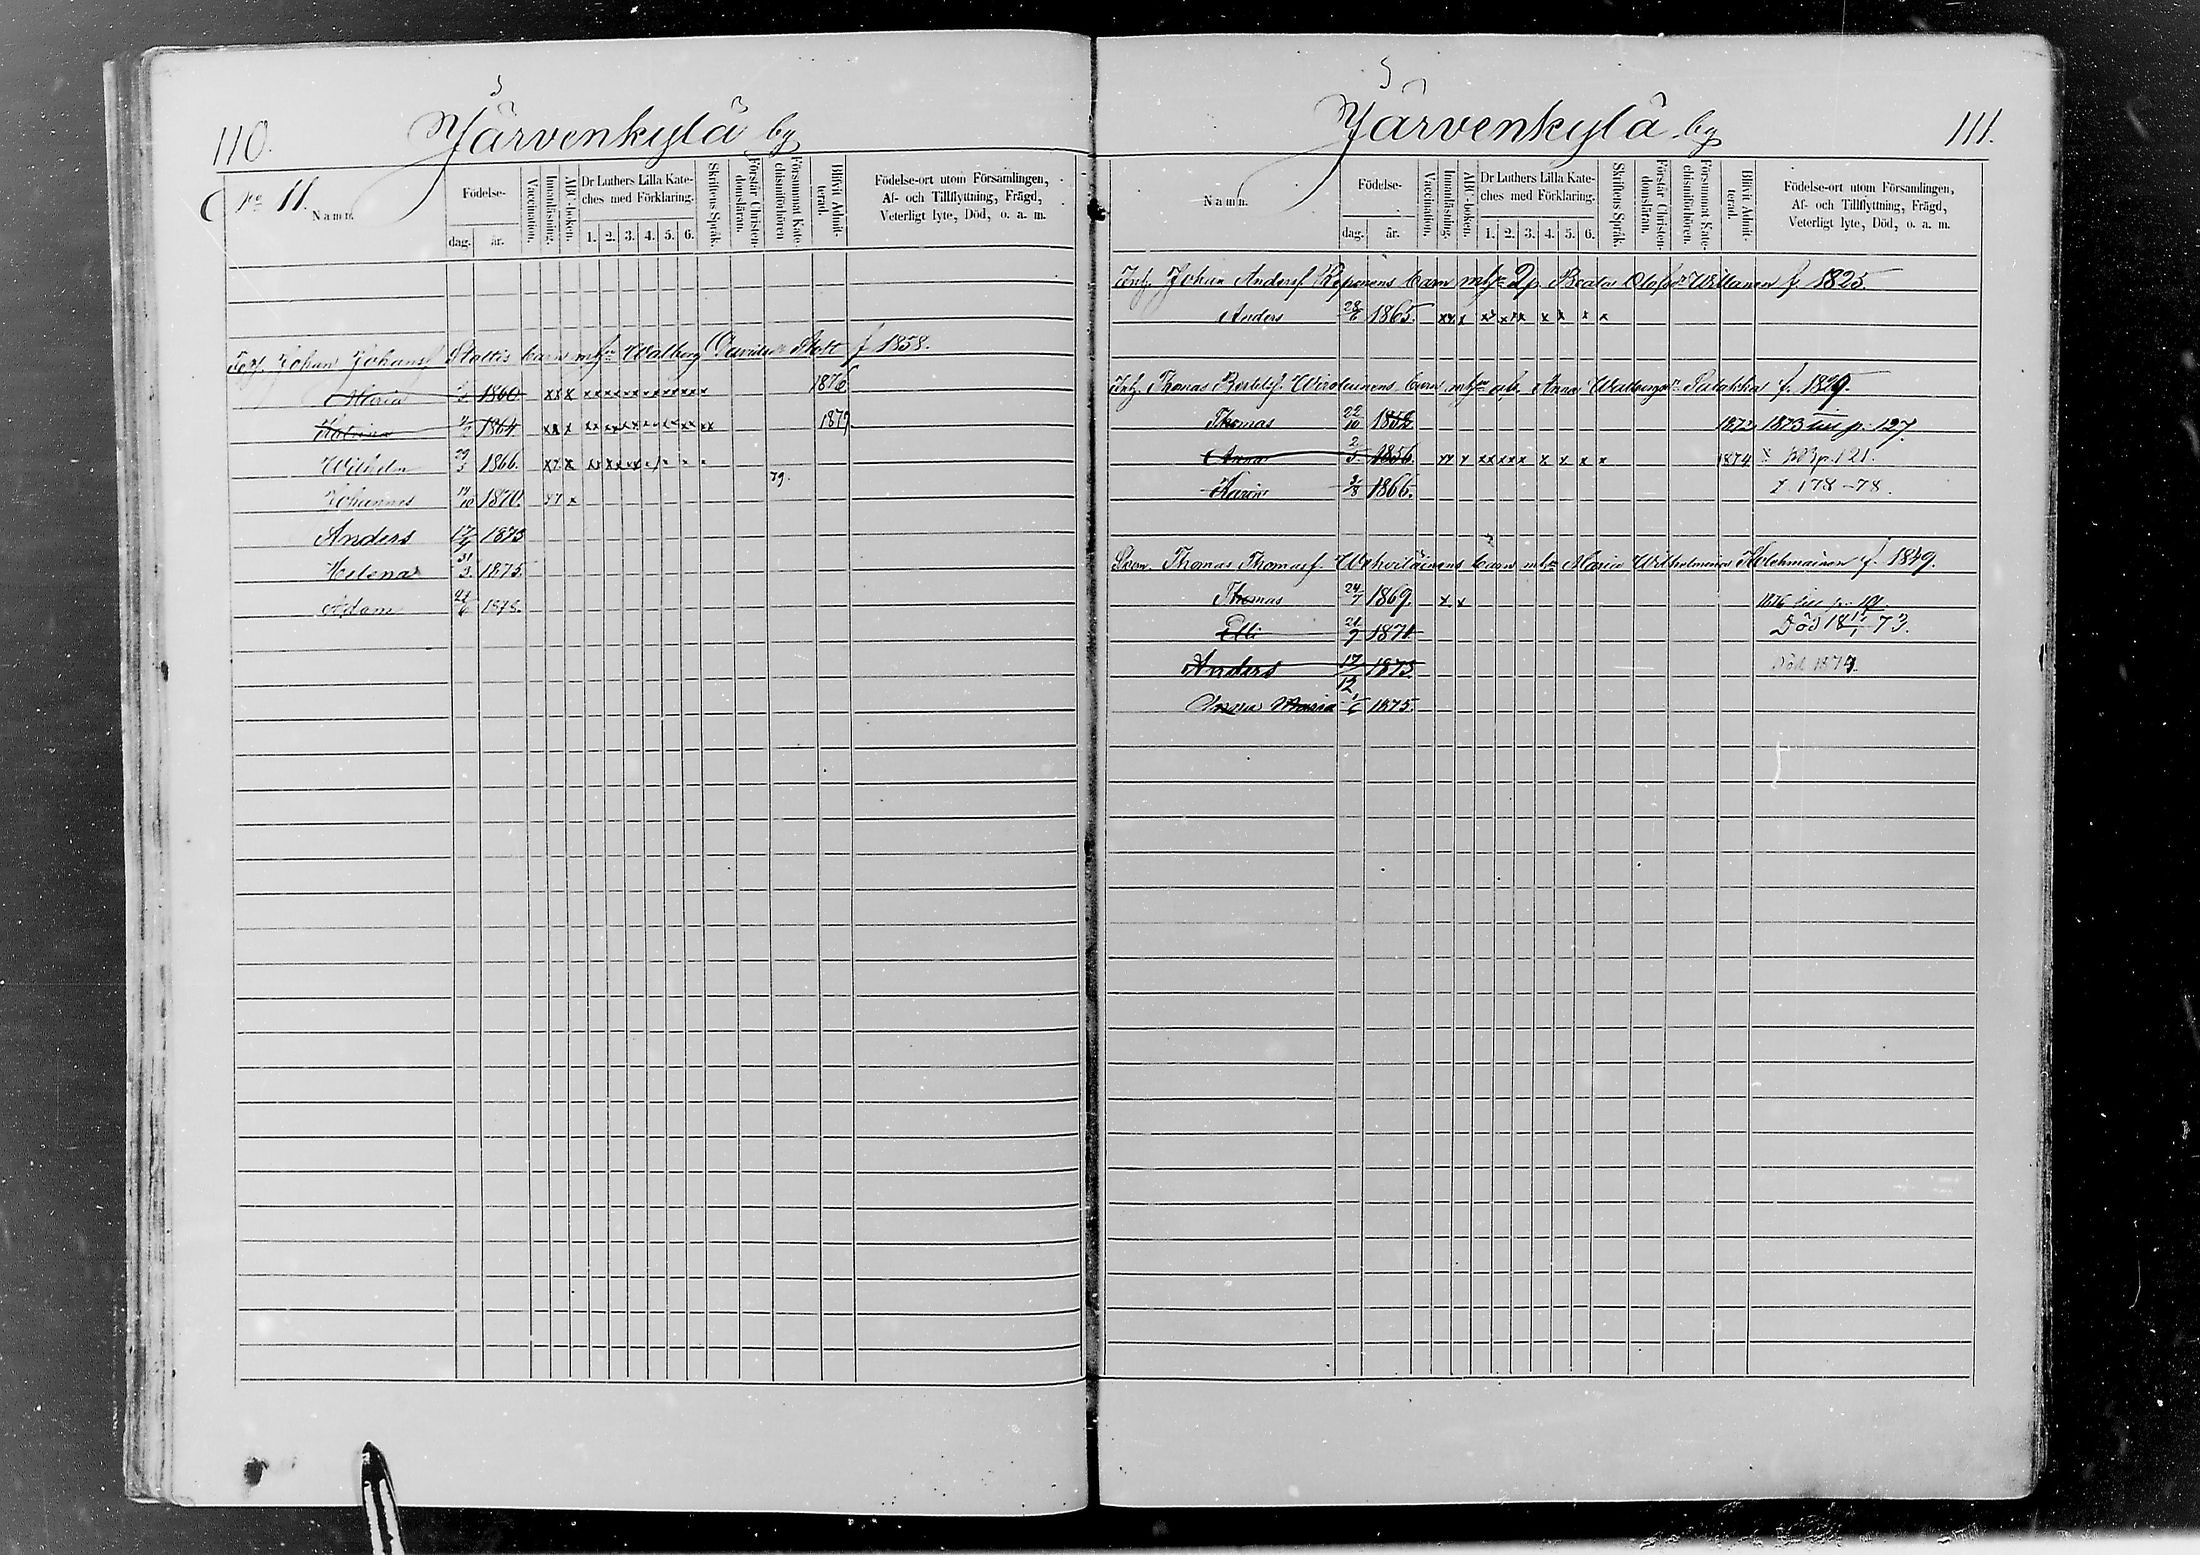 110. Järvenkylä by
No 11.
Namn.
Födelse-
dag. år.
Vaccination.
Innanläsning.
ABC-boken.
Dr Luthers Lilla Kate-
ches med Förklaring.
1. 2. 3. 4. 5. 6.
Skriftens Språk.
Förstår Christen-
domsläran.
Försummat Kate-
chismiförhören
Blifvit Admit-
terad.
Födelse-ort utom Församlingen,
Af- och Tillflyttning, Frägd,
Veterligt lyte, Död, o. a. m.
Johan Johansf barn Walborg f 1858.
Maria 1860 xx x 1876
Katrina 1864 xx x 1879
Wilhelm 29/3 1866. xx x
79.
Johannes 1870. xx x
Anders 1873
Helena 31/3 1875.
Adam 1878.
Järvenkylä by 111.
Namn.
Födelse-
dag. år.
Vaccination.
Innanläsning.
ABC-boken.
Dr Luthers Lilla Kate-
ches med Förklaring.
1. 2. 3. 4. 5. 6.
Skriftens Språk.
Förstår Christen-
domsläran.
Försummat Kate-
chismiförhören.
Blifvit Admit-
terad.
Födelse-ort utom Församlingen,
Af- och Tillflyttning, Frägd,
Veterligt lyte, Död, o. a. m.
Inh. Johan Andersf Reponens barn Beata Olofsdr f. 1825
Anders 28/6 1865. xx x
Inh. Thomas barn Anna f. 1829.
Thomas 22/10 1852 1873 p. 127.
Anna 2/3 1856. xx x 1874 p. 121.
Karin 1866. 178-78.
Thomas Thomasf. barn Maria Wilhelmina Kolehmainen f. 1849.
Thomas 24/7 1869. x x 1876
Elli 21/9 1871 Död 18 73.
Anders 17/12 1873 Död 1874.
Anna Maria 1/6 1875.